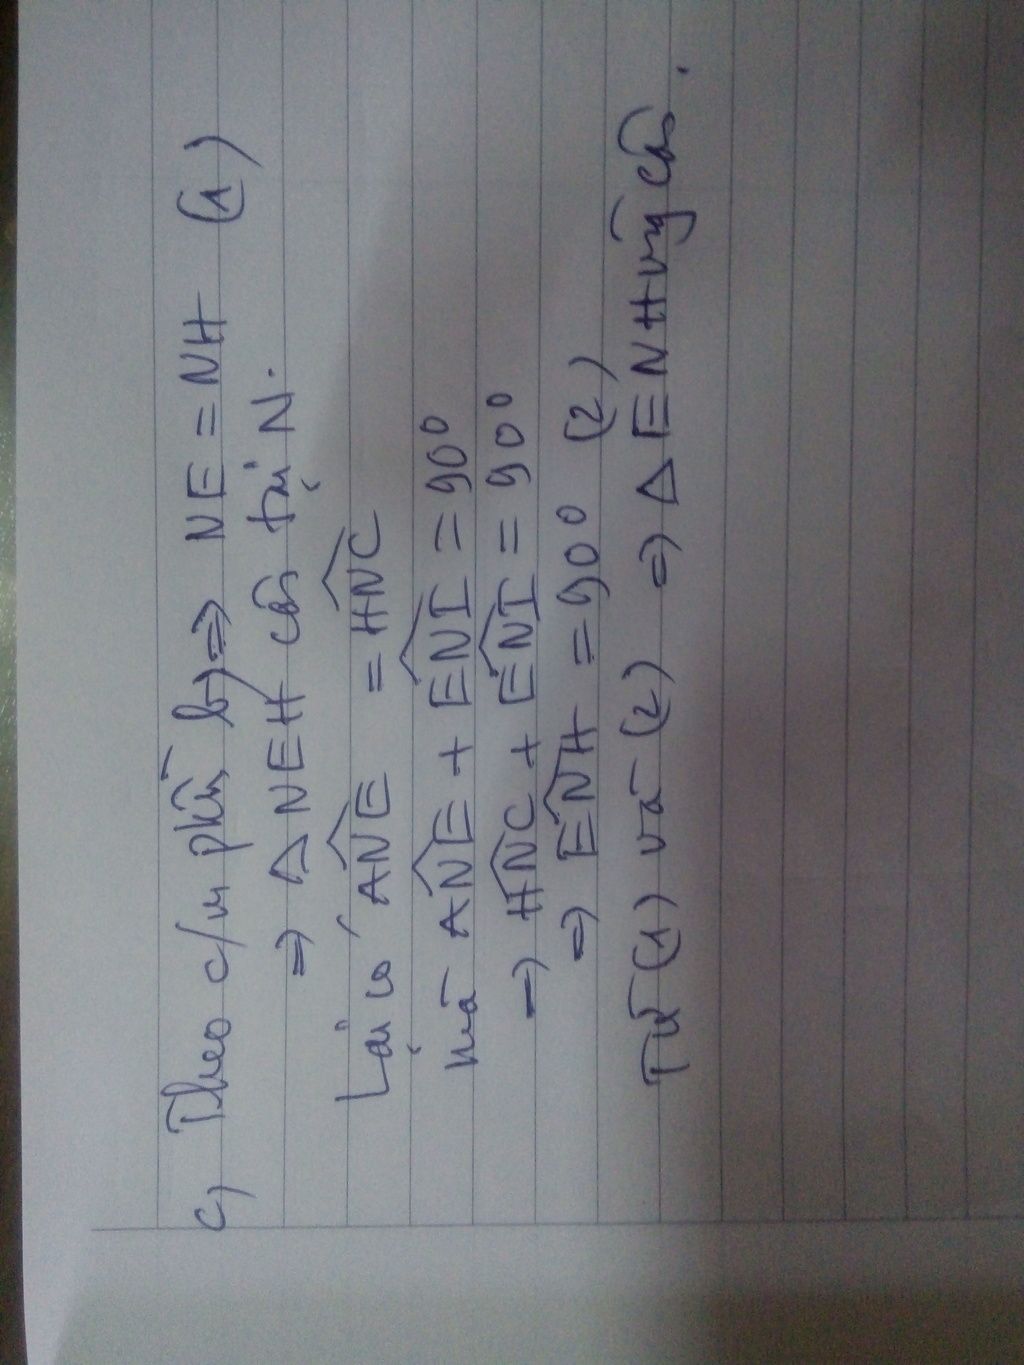 c) Theo c/m phần b) ⇒ NE = NH (1)
⇒ Δ NEH cân tại N.
Lại có ANE = HNC
mà ANE + ENI = 90°
⇒ HNC + ENI = 90°
⇒ ENH = 90° (2)
Từ (1) và (2) ⇒ Δ ENH vg cân.